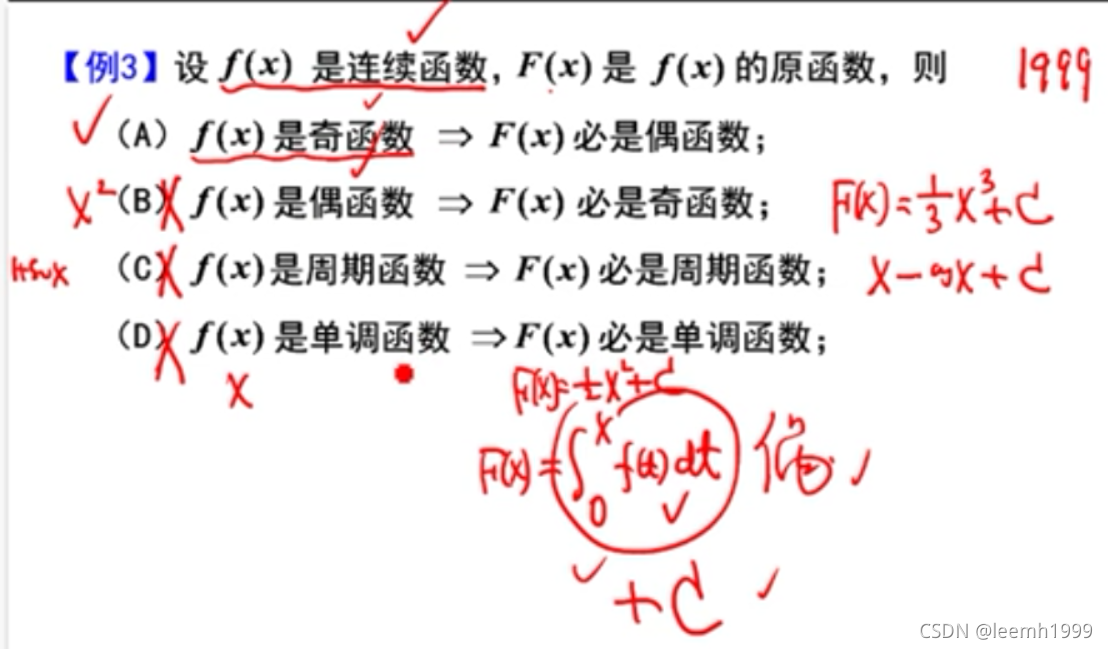 【例3】设 f(x) 是连续函数, F(x) 是 f(x) 的原函数, 则 1999
(A) f(x) 是奇函数 ⇒ F(x) 必是偶函数;
x² (B) f(x) 是偶函数 ⇒ F(x) 必是奇函数; F(x)=1/3 x³+C
1+sinx (C) f(x) 是周期函数 ⇒ F(x) 必是周期函数; x-cosx+C
(D) f(x) 是单调函数 ⇒ F(x) 必是单调函数;
x F(x)=½x²+C
F(x)=∫₀ˣ f(t)dt 偶
+C
CSDN @leemh1999